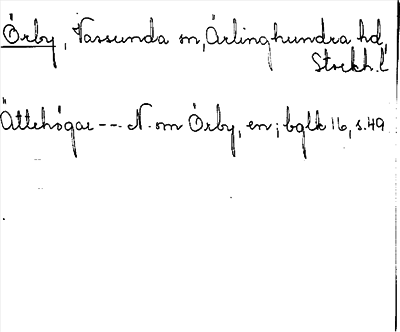 Örby, Vassunda sn, Ärlinghundra hd,
Stockh. l
Ättehögar --- N. om Örby, en; bglk 16, s. 49